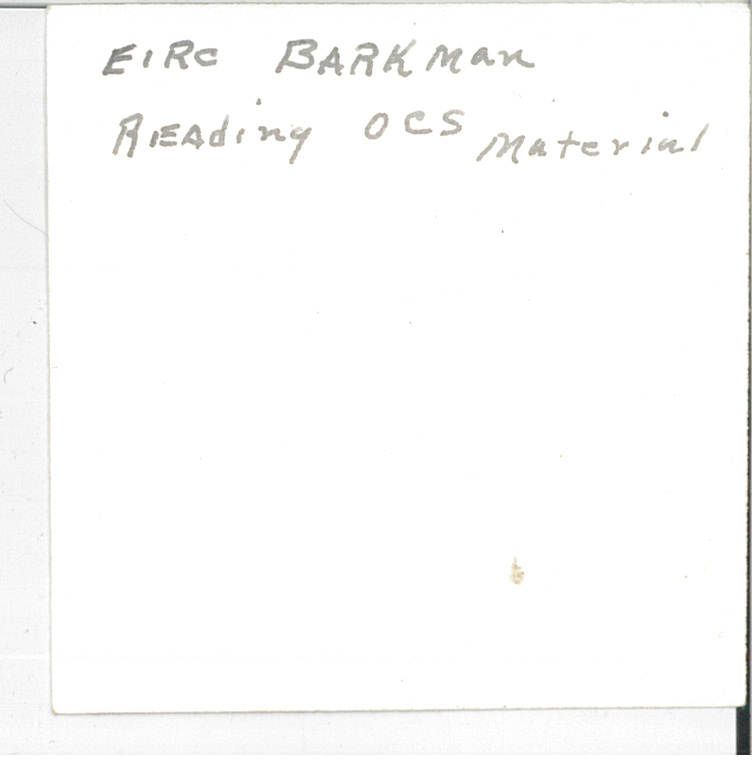 EIRC BARKMan
READing OCS Material